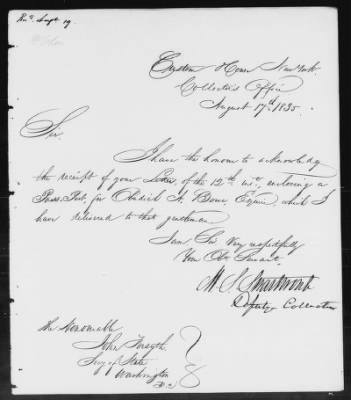 Rec. Sept 19.
Custom House New York.
Collector's Office
August 17th 1835.
Sir
I have the honour to acknowledge
the receipt of your Letter of the 12th inst, enclosing a
Pass. Port. for Obadiah A. Bowe, Esquire, which I
have delivered to that gentleman
I am Sir Very respectfully
Your Obt Servant
M. S. Swartwout
Deputy Collector
The Honorable
John Forsyth
Secy of State
Washington
D.C.